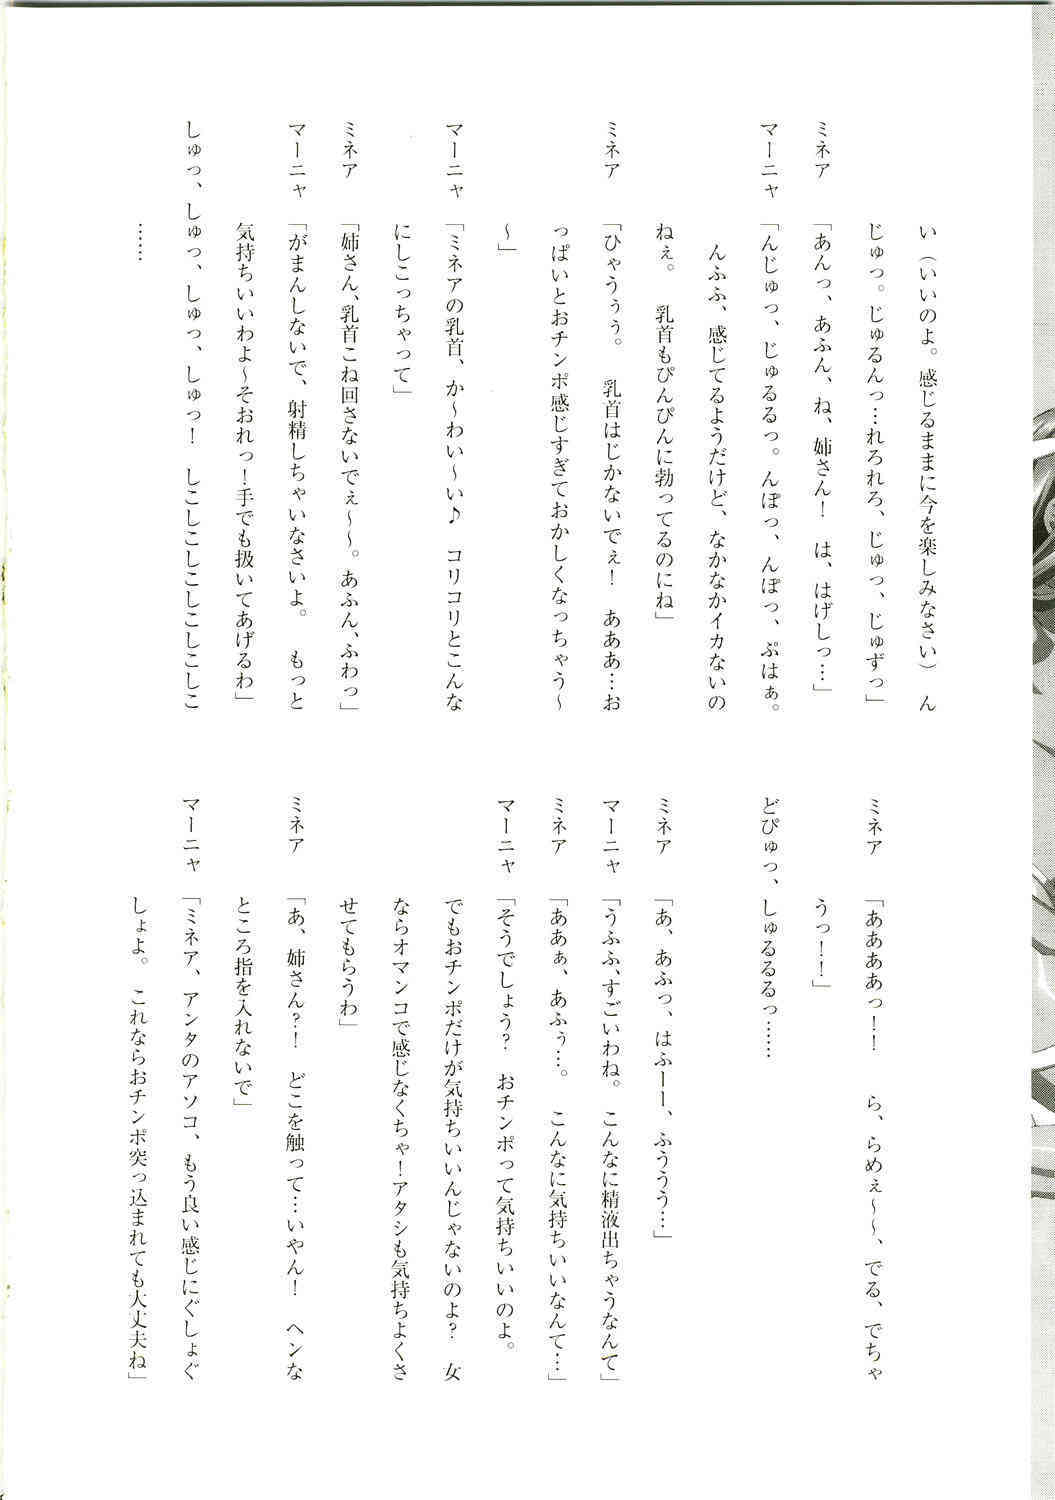 い（いいのよ。感じるままに今を楽しみなさい）　ん
じゅっ。じゅるんっ…れろれろ、じゅっ、じゅずっ」
ミネア　「あんっ、あふん、ね、姉さん！　は、はげしっ…」
マーニャ　「んじゅっ、じゅるるっ。んぽっ、んぽっ、ぷはぁ。
んふふ、感じてるようだけど、なかなかイカないの
ねぇ。　乳首もぴんぴんに勃ってるのにね」
ミネア　「ひゃうぅぅ。　乳首はじかないでぇ！　あああ…お
っぱいとおチンポ感じすぎておかしくなっちゃう〜
〜」
マーニャ　「ミネアの乳首、か〜わい〜い♪　コリコリとこんな
にしこっちゃって」
ミネア　「姉さん、乳首こね回さないでぇ〜〜。あふん、ふわっ」
マーニャ　「がまんしないで、射精しちゃいなさいよ。　もっと
気持ちいいわよ〜そおれっ！手でも扱いてあげるわ」
しゅっ、しゅっ、しゅっ、しゅっ！　しこしこしこしこしこ
……
ミネア　「ああああっ！！　ら、らめぇ〜〜、でる、でちゃ
うっ！！」
どぴゅっ、しゅるるるっ……
ミネア　「あ、あふっ、はふーー、ふううう…」
マーニャ　「うふふ、すごいわね。こんなに精液出ちゃうなんて」
ミネア　「ああぁ、あふぅ…。　こんなに気持ちいいなんて…」
マーニャ　「そうでしょう？　おチンポって気持ちいいのよ。
でもおチンポだけが気持ちいいんじゃないのよ？　女
ならオマンコで感じなくちゃ！アタシも気持ちよくさ
せてもらうわ」
ミネア　「あ、姉さん？！　どこを触って…いやん！　ヘンな
ところ指を入れないで」
マーニャ　「ミネア、アンタのアソコ、もう良い感じにぐしょぐ
しょよ。　これならおチンポ突っ込まれても大丈夫ね」